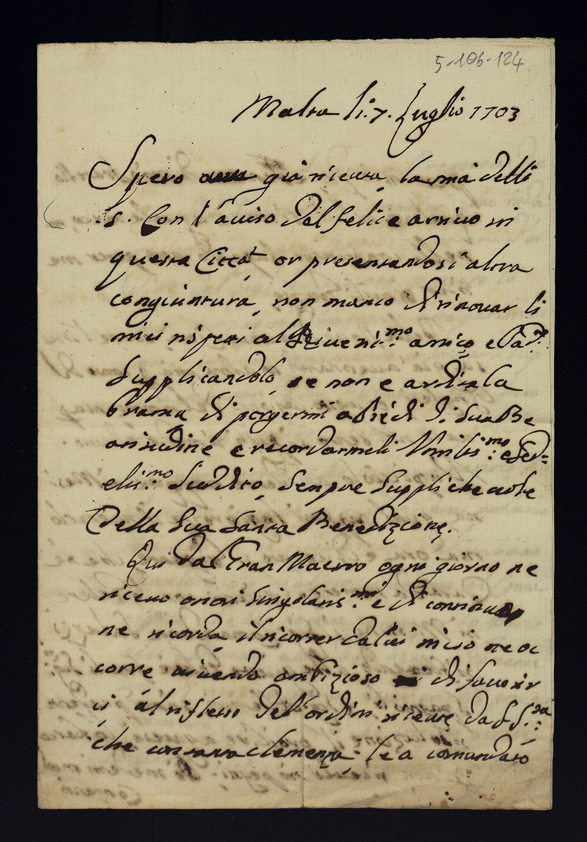 5-106-124
Malta li 7. Luglio 1703
Spero già ricevuta la mia delli
5. Con l'aviso del felice arrivo in
questa Città, or presentandosi altra
congiuntura, non manco di rinovar li
miei al Riveri.mo amico e Pad.e
Supplicandolo, se non è ardita la
brama di porgermi a Piedi di Sua Be
atitudine e ricordarmeli Umilis.mo e Fed=
elis.mo Suddito, sempre supplichevole
della Sua Santa Benedizione.
Qui dal Gran Maestro ogni giorno ne
ricevo onori singolaris.mi e di continuo
ne ricorda il ricorrer da lui in ciò ne oc
corre vivendo ambizioso di favorir
ci al riflesso dell'ordini riceve da S. S.tà
che con tanta clemenza le a comandato